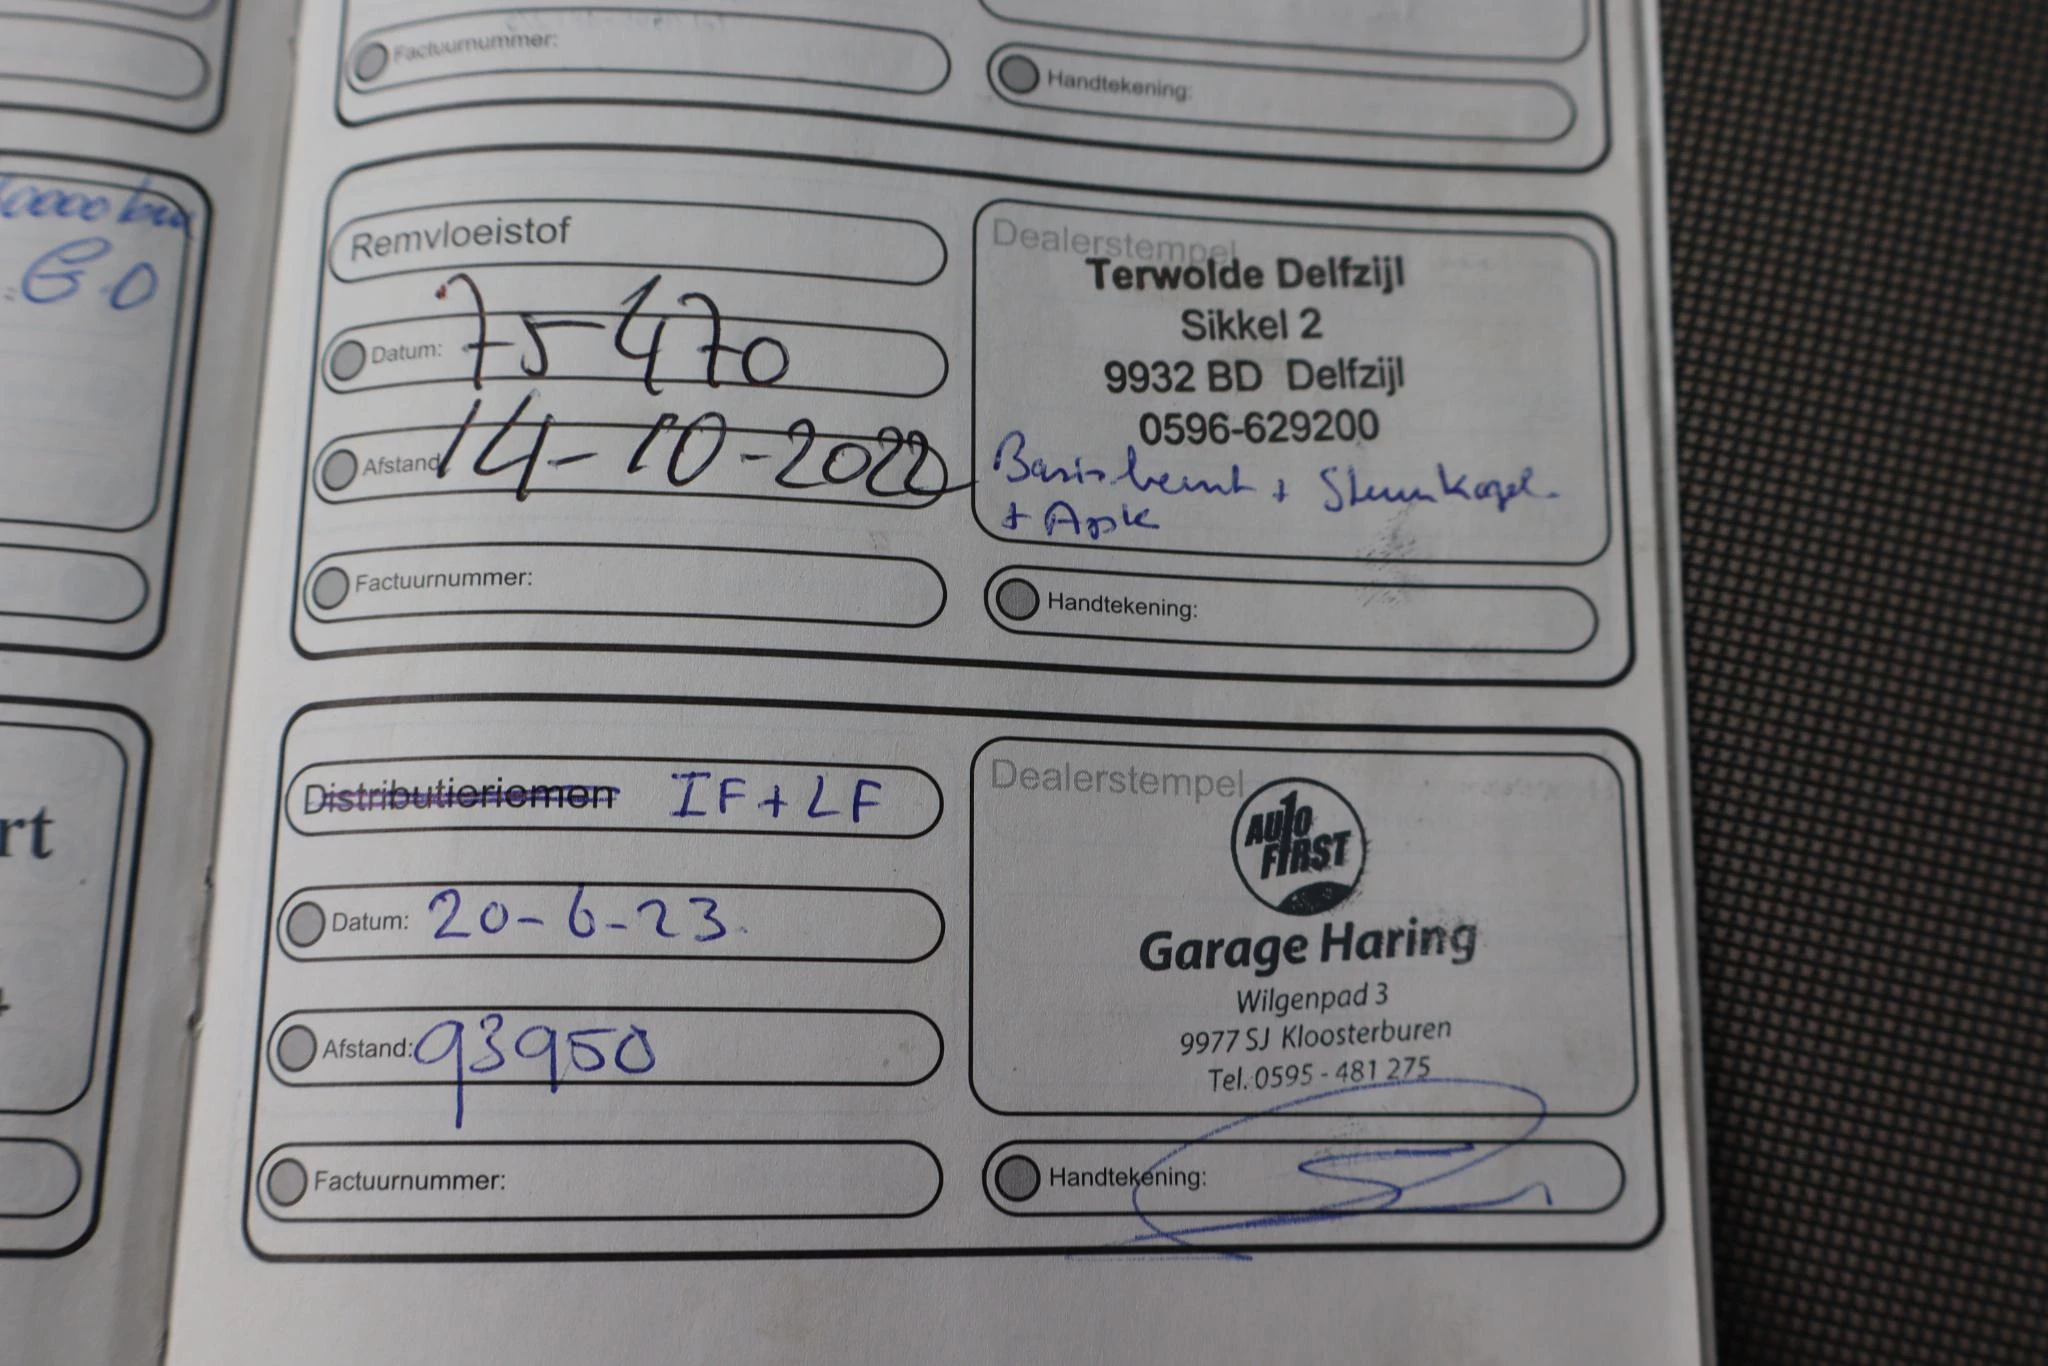 Factuurnummer:
Handtekening:
0000 km
G.O
Remvloeistof
Datum: 75470
Afstand 14-10-2022
Factuurnummer:
Dealerstempel
Terwolde Delfzijl
Sikkel 2
9932 BD Delfzijl
0596-629200
Basisbeurt + Stuurkogel
+ Apk
Handtekening:
Distributieriemen IF + LF
Datum: 20-6-23
Afstand: 93950
Factuurnummer:
Dealerstempel
AUTO
FIRST
Garage Haring
Wilgenpad 3
9977 SJ Kloosterburen
Tel. 0595 - 481 275
Handtekening:
rt